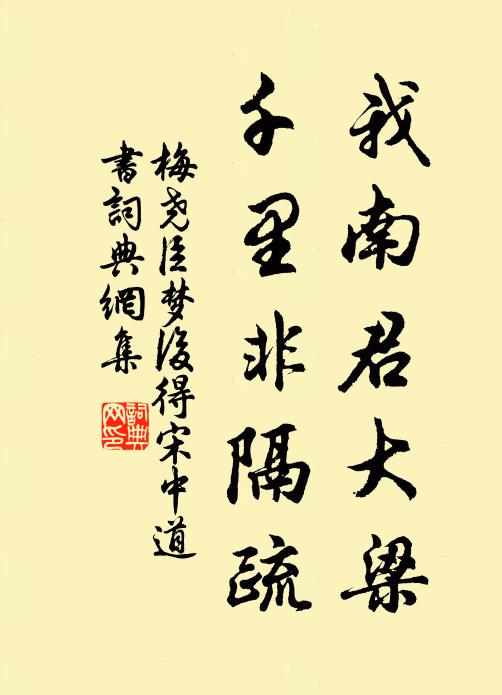 我南君大梁
千里非隔疏
梅尧臣梦后得宋中道
書詞典網集
詞典
网印